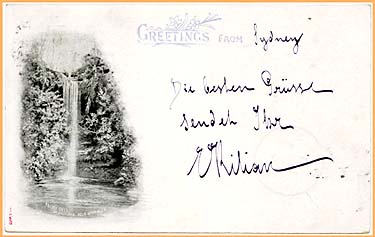 GREETINGS FROM Sydney
Die besten Grüsse
sendet Ihr
EKilian